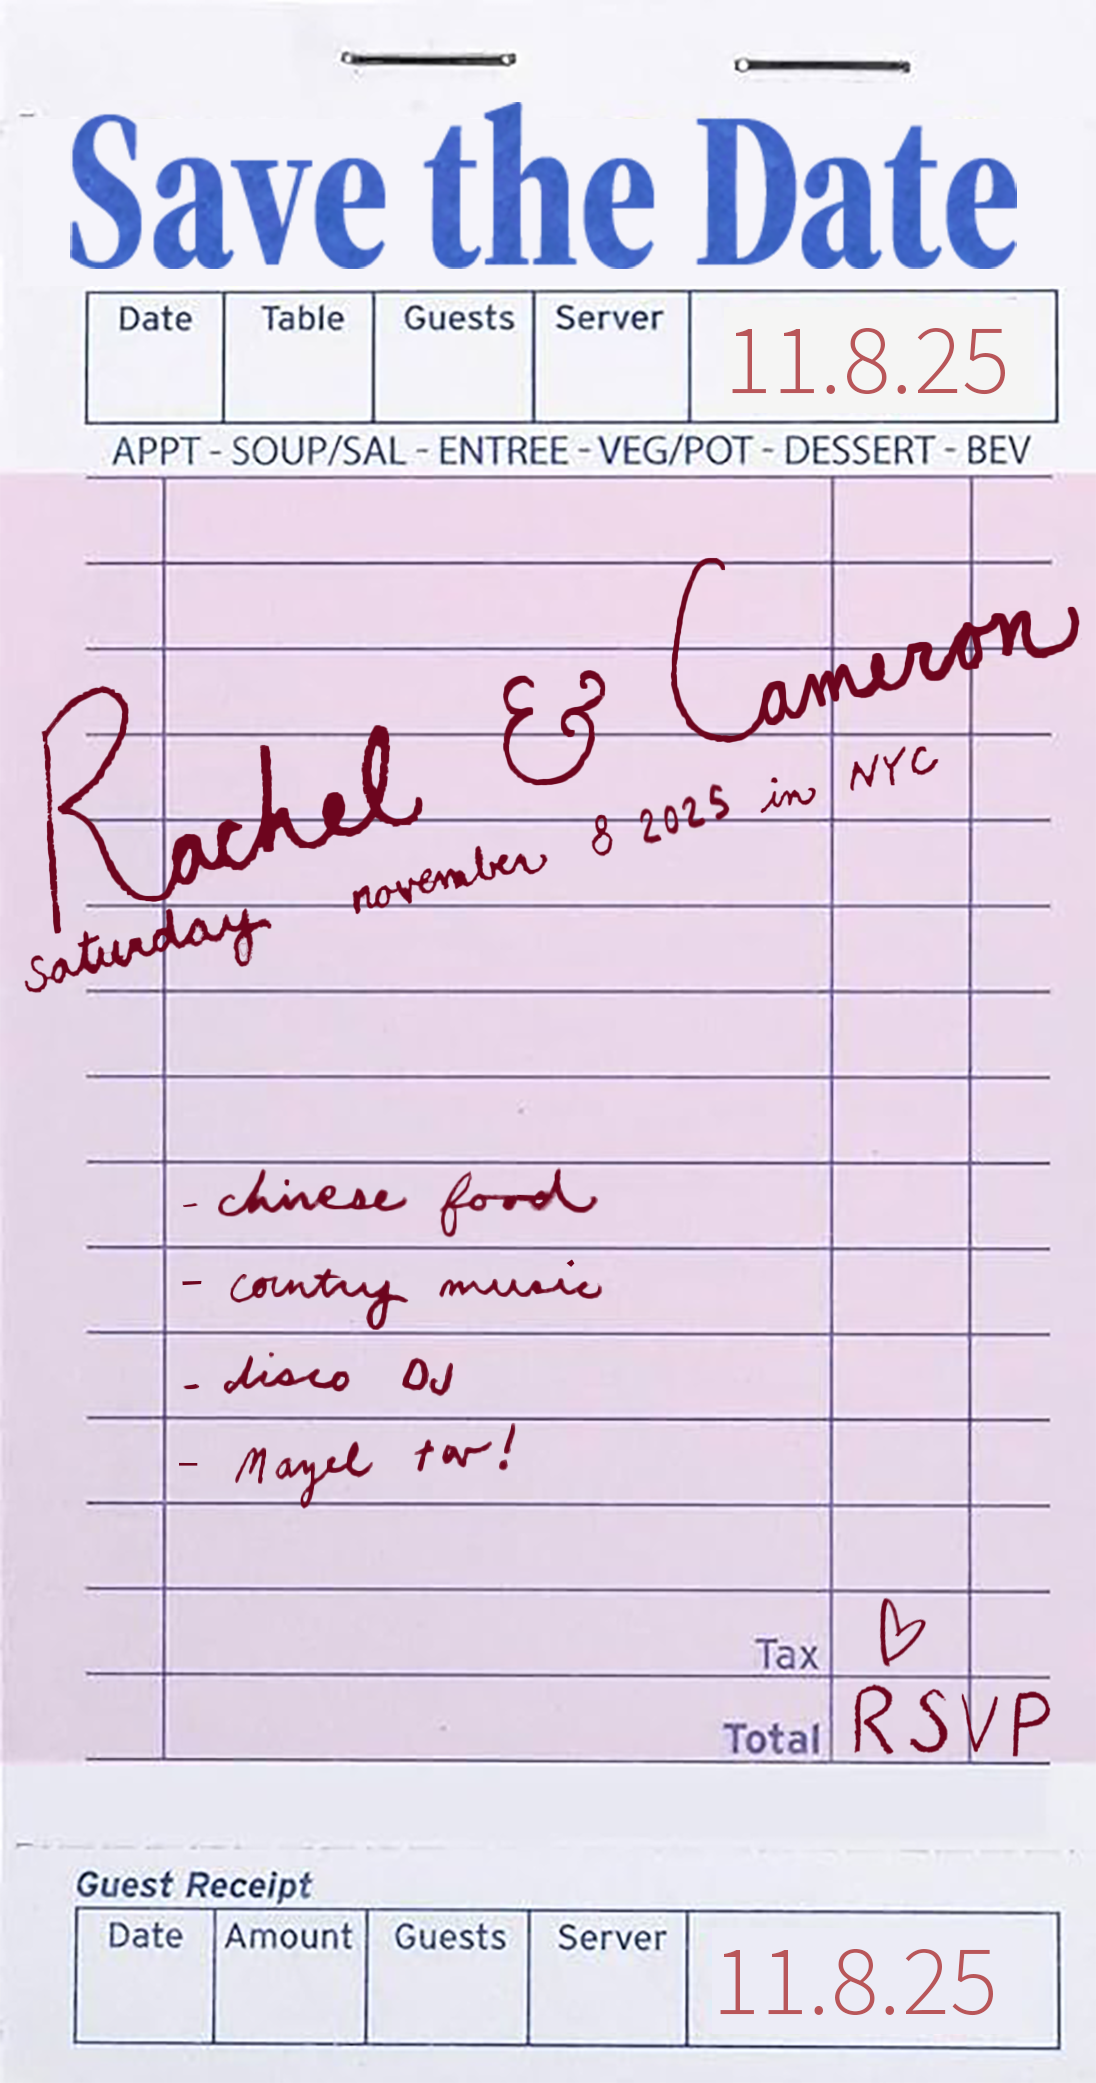 Save the Date
Date Table Guests Server 11.8.25
APPT - SOUP/SAL - ENTREE - VEG/POT - DESSERT - BEV
Rachel & Cameron
saturday november 8 2025 in NYC
- chinese food
- country music
- disco DJ
- Mazel tov!
Tax
Total RSVP
Guest Receipt
Date Amount Guests Server 11.8.25